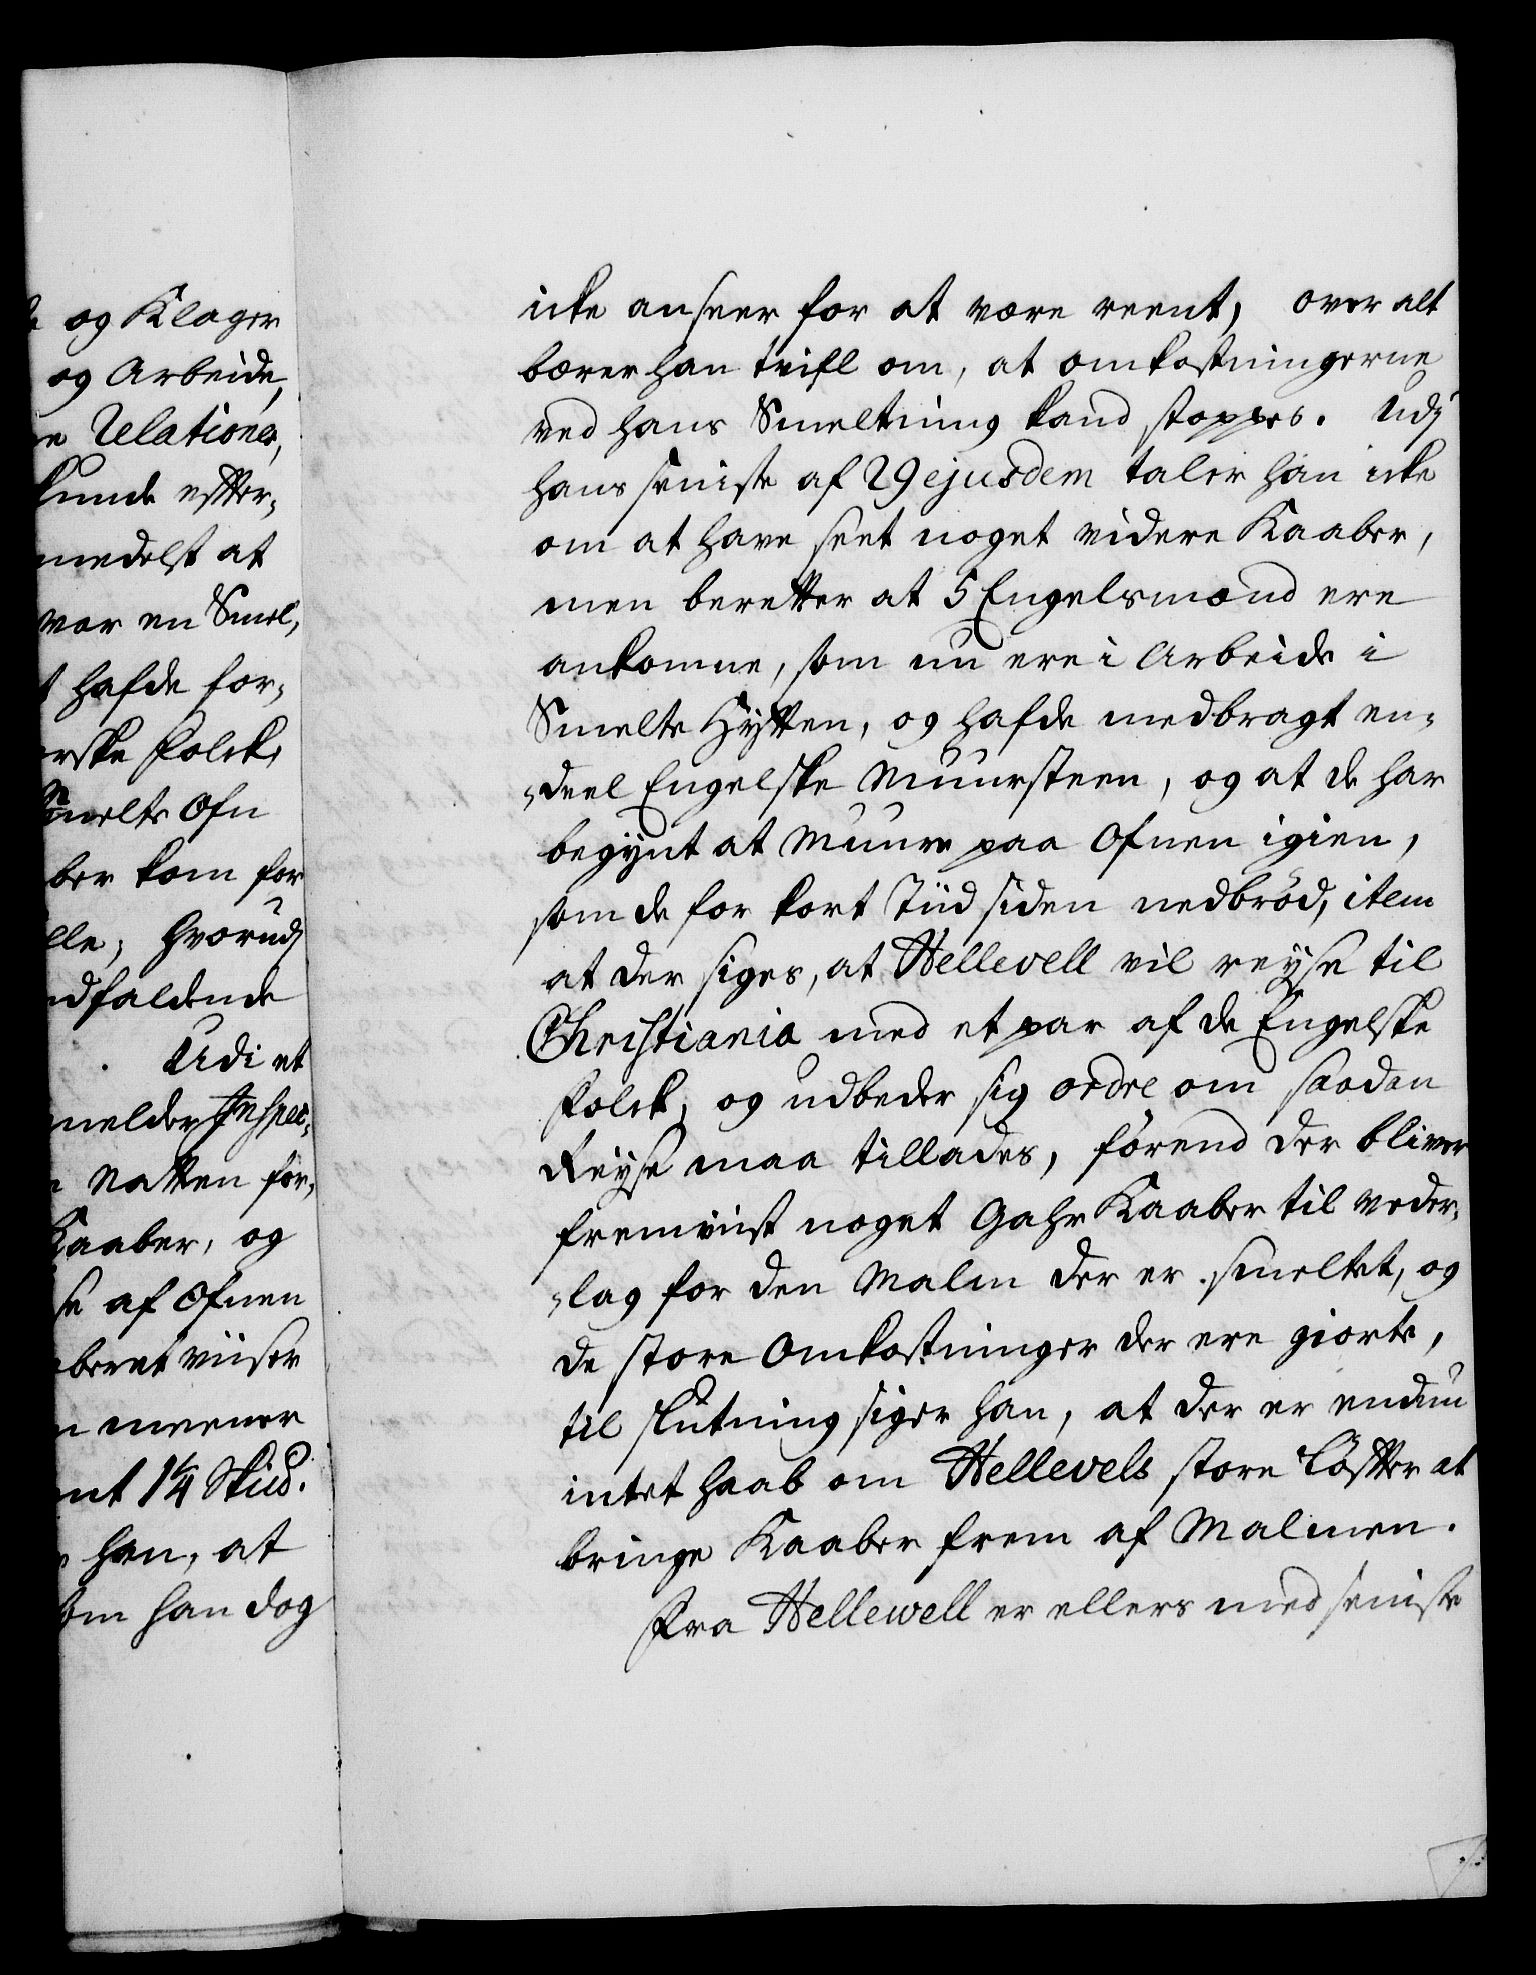 og Klager
og Arbeide,
Relationer,
kunde effter,
medelst at
var en Smel,
hafde for,
Folck,
Smelte Ofn
ber kom for
lle, hvorudj
dfaldende
Udi et
melder Inspec,
Natten för,
Kaaber, og
se af Ofnen
beret viiser
meener
nt 1¼ Skud.
han, at
som han dog
icke anseer for at være reent, over alt
bærer han tvifl om, at omkostningerne
ved hans Smeltning kand stoppes. Udj
hans seniste af 29 ejusdem taler han icke
om at have seet noget videre Kaaber,
men beretter at 5 Engelsmænd ere
ankomne, som nu ere i Arbeide i
Smelte Hytten, og hafde medbragt en-
deel Engelske Muursteen, og at de har
begynt at Muure paa Ofnen igien,
som de for kort Tiid siden nedbröd, item
at der siges, at Hellevell vil reyse til
Christiania med et par af de Engelske
Folck, og udbeder sig ordre om saadan
Reyse maa tillades, förend der bliver
fremviist noget Gahr Kaaber til veder,
„lag for den Malm der er smeltet, og
de store Omkostninger der ere giorte,
til slutning siger han, at der er endnu
intet haab om Hellevels store löffter at
bringe Kaaber frem af Malmen.
Fra Hellewell er ellers med seniste